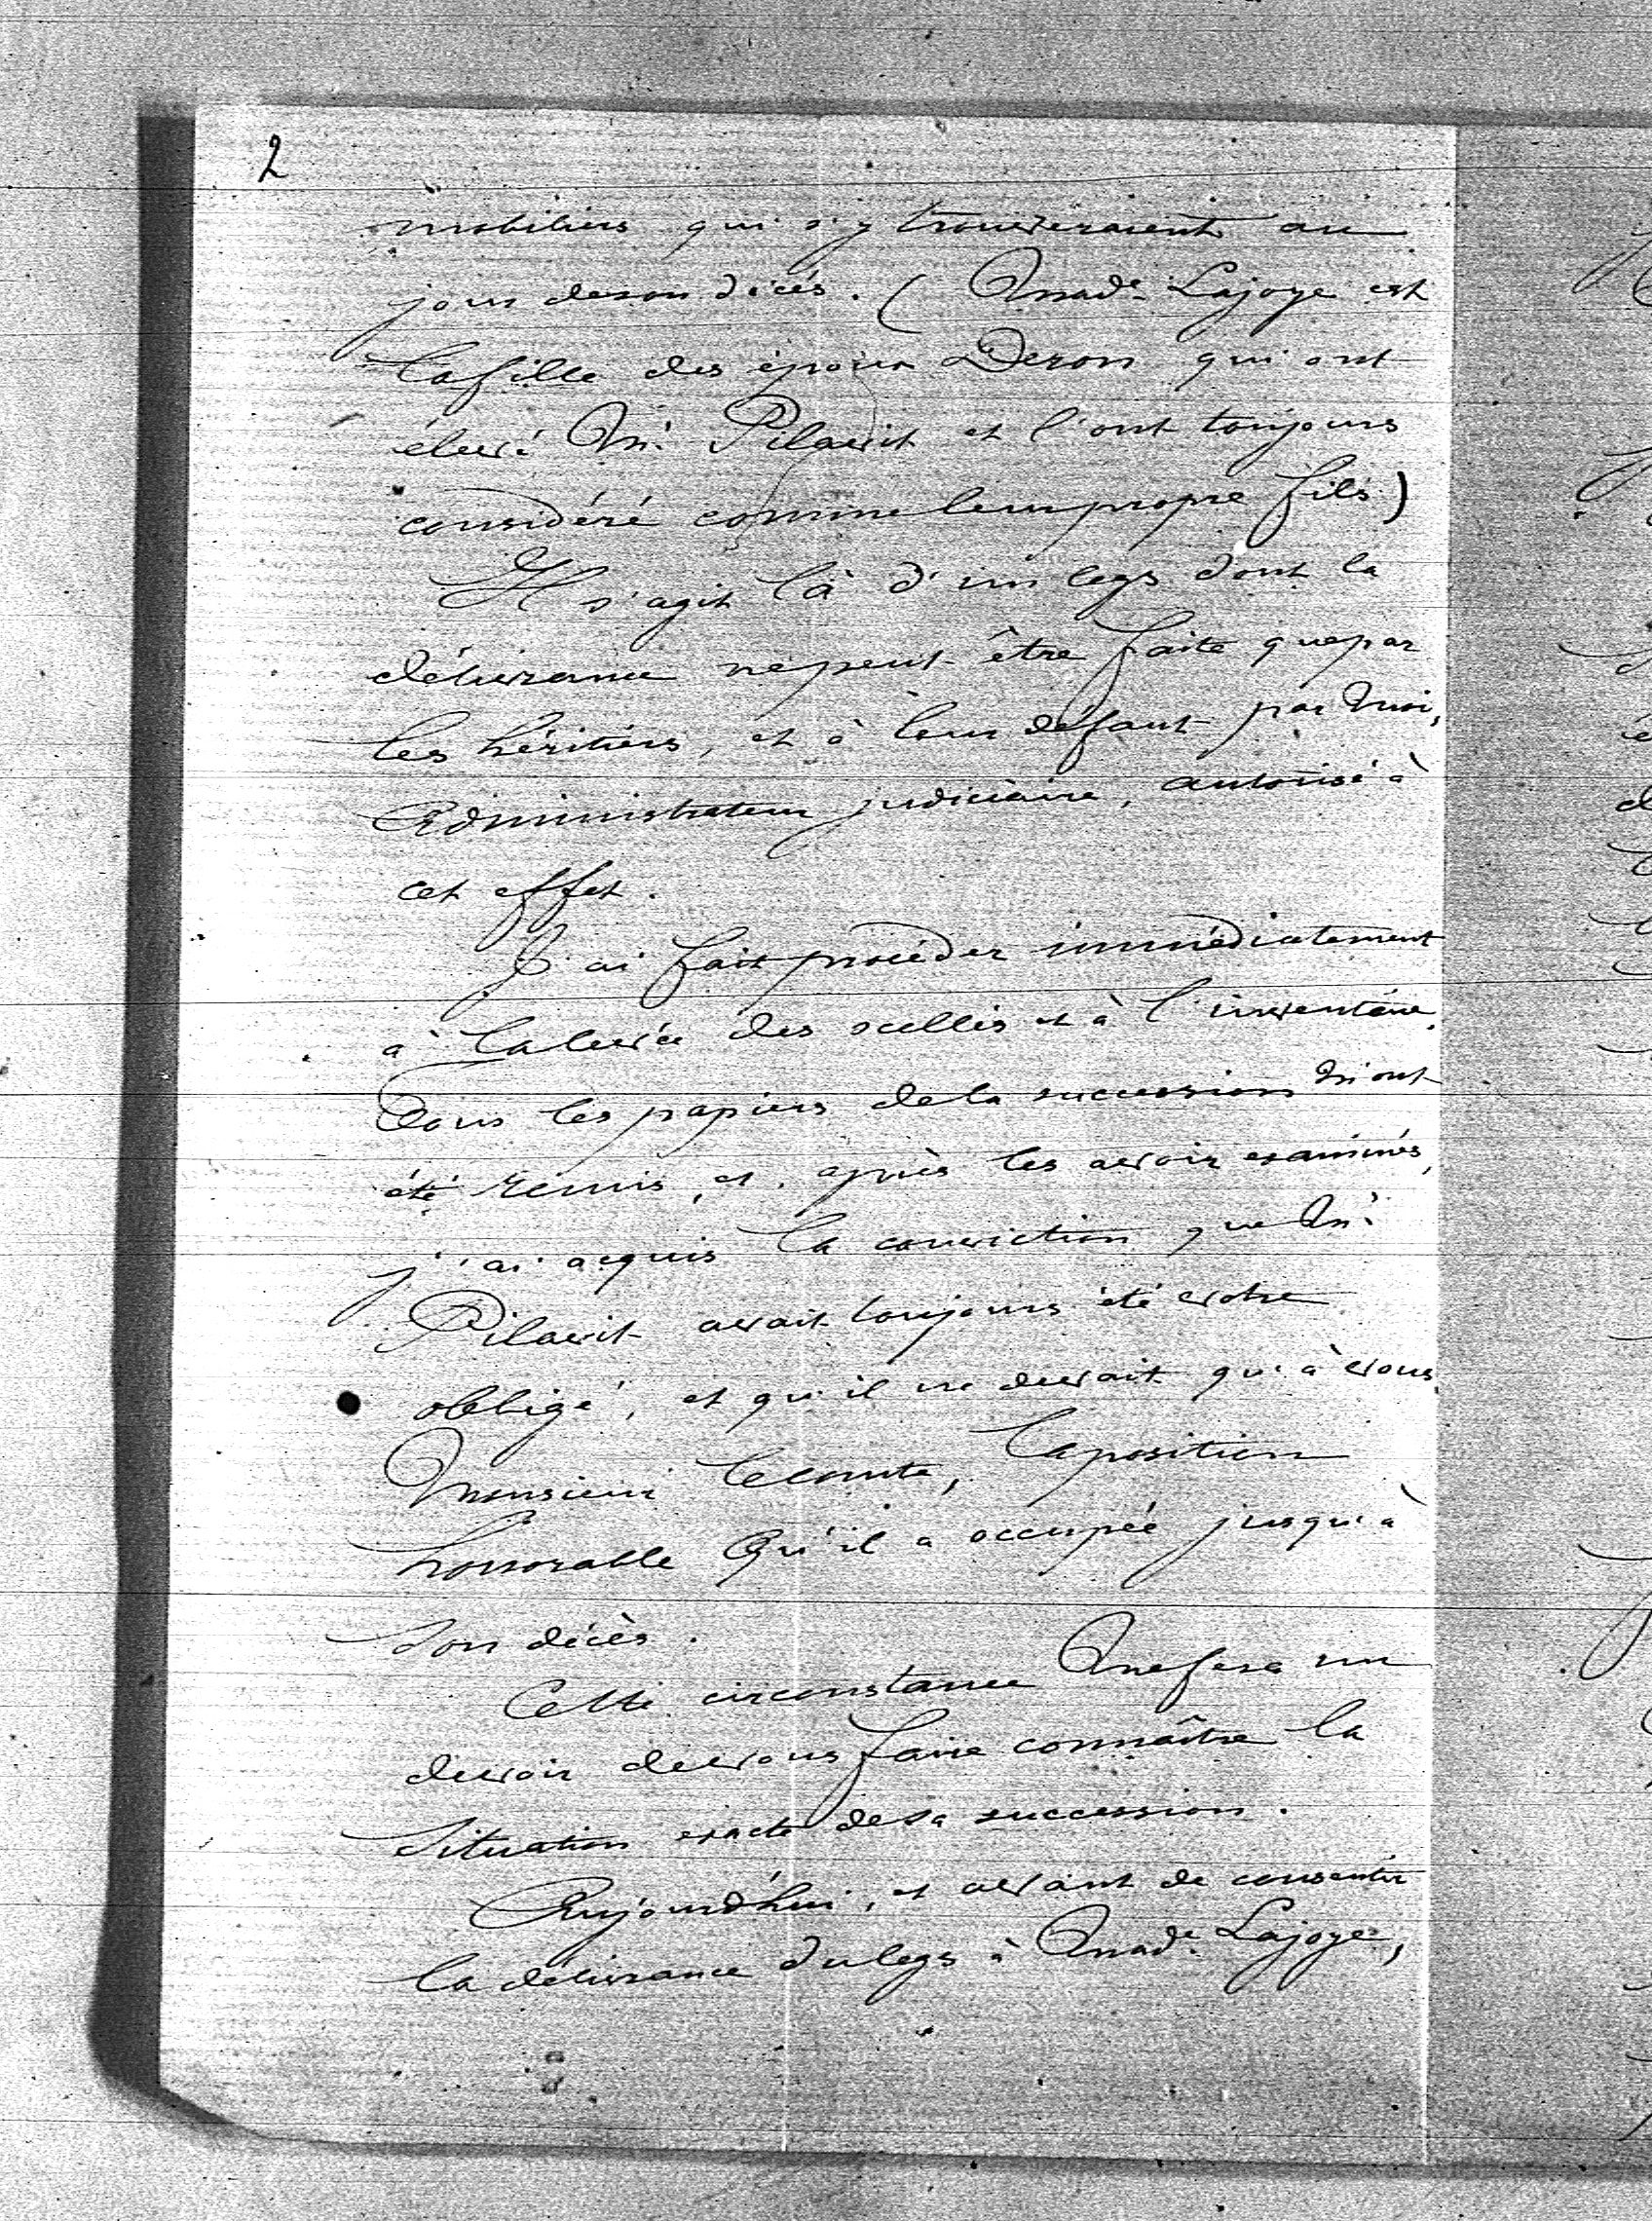 2
mobiliers qui s'y trouveraient au
jour de son décès. (Made Lajoye est
la fille des époux Deron qui ont
élevé Mr Pilavit et l'ont toujours
considéré comme leur propre fils)
Il s'agit là d'un legs dont la
délivrance ne peut être faite que par
les héritiers, et à leur défaut par moi,
Administrateur judiciaire, autorisé à
cet effet.
J'ai fait procéder immédiatement
à la levée des scellés et à l'inventaire.
Tous les papiers de la succession m'ont
été remis, et, après les avoir examinés,
j'ai acquis la conviction que Mr
Pilavit avait toujours été votre
obligé, et qu'il ne devait qu'à vous,
Monsieur le comte, la position
honorable qu'il a occupée jusqu'à
son décès.
Cette circonstance me fera un
devoir de vous faire connaître la
situation exacte de sa succession.
Aujourd'hui, et avant de consentir
la délivrance du legs à Made Lajoye,